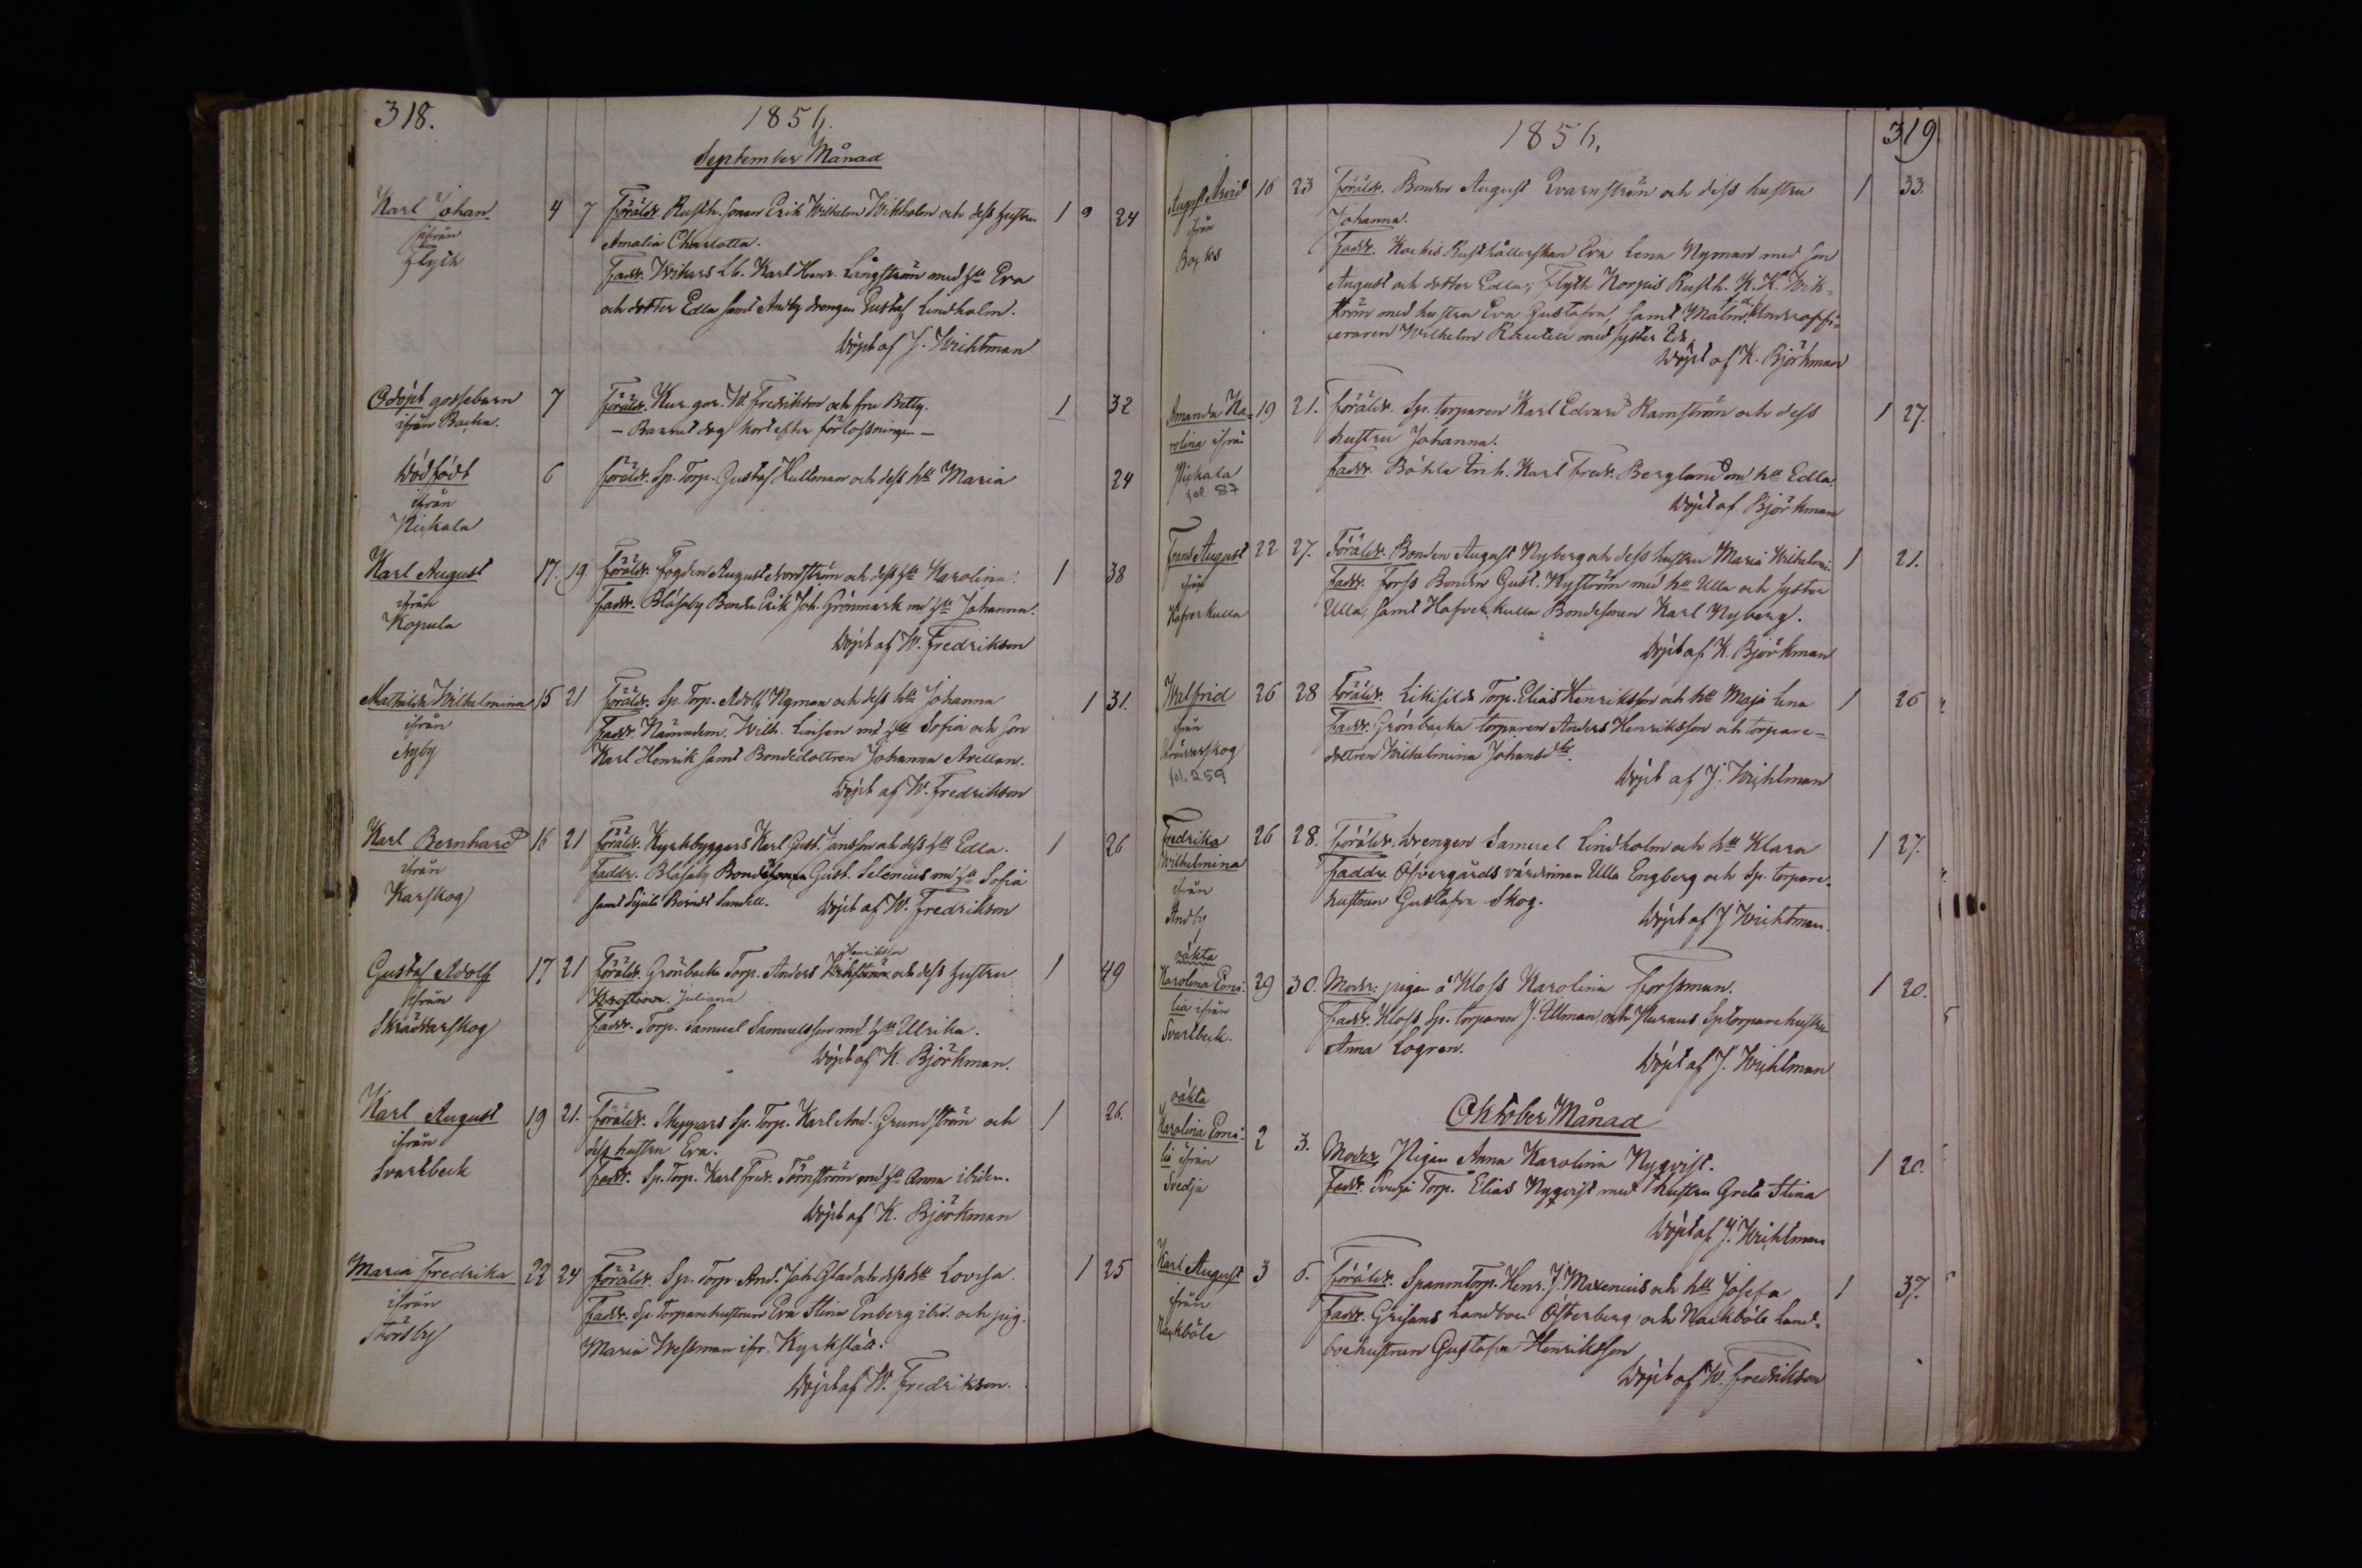 318.
1856.
September Månad
Karl Johan
ifrån
Flyth
4 7
Föräldr. Rusth. sonen Erik Wilhelm Wikholm och dess hustru
Amalia Charlotta.
Faddr. Wikars Lb. Karl Henr. Långström med hu Eva
och dotter Edla samt Andby drengen Gustaf Lindholm.
Döpt af J. Wichtman
1 9 24
Odöpt gossebarn
ifrån Backa.
7
Föräldr. Kur. gor. W. Fredrikson och fru Betty.
— Barnet dog kort efter förlossningen —
1 32
Dödfödt
ifrån
Kickala
6
Föräldr. Sp. Torp. Gustaf Hultman och dess hu Maria
24
Karl August
ifrån
Kopula
17. 19
Föräldr. Fogden August Nordström och dess hu Karolina.
Faddr. Blåsaby Bonde Erik Joh. Grönmark m hu Johanna.
Döpt af W. Fredrikson
1 38
Mathilda Wilhelmina
ifrån
Nyby
15 21
Föräldr. Sp. Torp. Adolf Nyman och dess hu Johanna
Faddr. Nämndem. Wilh. Linsen md hu Sofia och son
Karl Henrik samt Bondedottren Johanna Avellan.
Döpt af W. Fredrikson
1 31.
Karl Bernhard
ifrån
Karskog
16 21
Föräldr. Kyrkbyggars Karl Gust. Jansson och dess hu Edla.
Faddr. Blåsaby Bondesonen Gust. Selenius md hu Sofia
samt Berndt Sundell. Döpt af W. Fredrikson
1 26
Gustaf Adolf
ifrån
Skräddarskog
17 21
Henriksson
Föräldr. Grönbacka Torp. Anders Wikström och dess hustru
Kristina. Juliana
Faddr. Torp. Samuel Samuelsson md hu Ulrika.
Döpt af K. Björkman.
1 49
Karl August
ifrån
Svartbeck
19 21.
Föräldr. Skeppars Sp. Torp. Karl And. Grundström och
dess hustru Eva.
Faddr. Sp. Torp. Karl Fredr. Törnström md hu Anna ibidem.
Döpt af K. Björkman
1 26.
Maria Fredrika
ifrån
Törsby
22 24
Föräldr. Sp. Torp. And. Joh. Glad och dess hu Lovisa.
Faddr. Sp. Torparehustrun Eva Stina Enberg ibid. och pig.
Maria Westman ifr. Kyrkslätt.
Döpt af W. Fredrikson.
1 25
1856.
319.
August Arvid
ifrån
16 23
Föräldr. Bonden August Qvarnström och dess hustru
Johanna.
Faddr. Rusthållerskan Eva Lena Nyman med son
August och dotter Edla, Flyth Korpis Rusth. K. H. Wik-
ström med hustru Eva Gustafva, samt Malm Underoffi-
ceraren Wilhelm med syster Eda.
Döpt af K. Björkman
1 33.
Amanda Ka-
rolina ifrån
Kickala
fol 87
19 21.
Föräldr. Sp. torparen Karl Edvard Ramström och dess
hustru Johanna.
Faddr. Böhle Enk. Karl Fredr. Berglund md hu Edla.
Döpt af Björkman
1 27.
Frans August
ifrån
Hafverkulla
22 27.
Föräldr. Bonden August Nyberg och dess hustru Maria Wilhelmi.
Faddr. Forss Bonden Gust. Nyström med hu Ulla och syster
Ulla, samt Hafverkulla Bondesonen Karl Nyberg.
Döpt af K. Björkman
1 21.
Walfrid
ifrån
fol. 259
26 28
Föräldr. Torp. Elias Henriksson och hu Maja Lena
Faddr. Grönbacka torparen Anders Henriksson och torpare-
dottren Wilhelmina Johansdtr.
Döpt af J. Wichtman
1 26
Fredrika
Wilhelmina
ifrån
Andby
26 28.
Föräldr. Drengen Samuel Lindholm och hu Klara
Faddr. Öfvergårds värdinnan Ulla Engberg och Sp. torpare-
hustrun Gustafva Skog.
Döpt af J. Wichtman.
1 27.
oäkta
Karolina Emi-
lia ifrån
Svartbeck.
29 30.
Modr. pigan å Kloss Karolina Forssman.
Faddr. Kloss Sp. torparen J. Ullman och Sptorparehustru
Anna Logren.
Döpt af J. Wichtman
1 20.
Oktober Månad
oäkta
Karolina Emi-
lia ifrån
Svedja
2 3.
Moder Pigan Anna Karolina Nyqvist.
Faddr. Svedja Torp. Elias Nyqvist med hustru Greta Stina
Döpt af J. Wichtman
1 20.
Karl August
ifrån
Nackböle
3 5.
Föräldr. Torp. Henr. J. Maxenius och hu Josefa
Faddr. Grisans Landbon Österberg och Nackböle Land-
boehustrun Gustafva Henriksson
Döpt af W. Fredrikson
1 37.